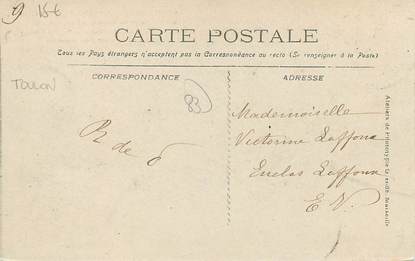 9 15€
CARTE POSTALE
Tous les Pays étrangers n'acceptent pas la Correspondance au recto (Se renseigner à la Poste)
CORRESPONDANCE
ADRESSE
TOULON
83
R de
Mademoiselle
Victorine Laffoux
Enclos Laffoux
E. V.
Ateliers de Phototypie